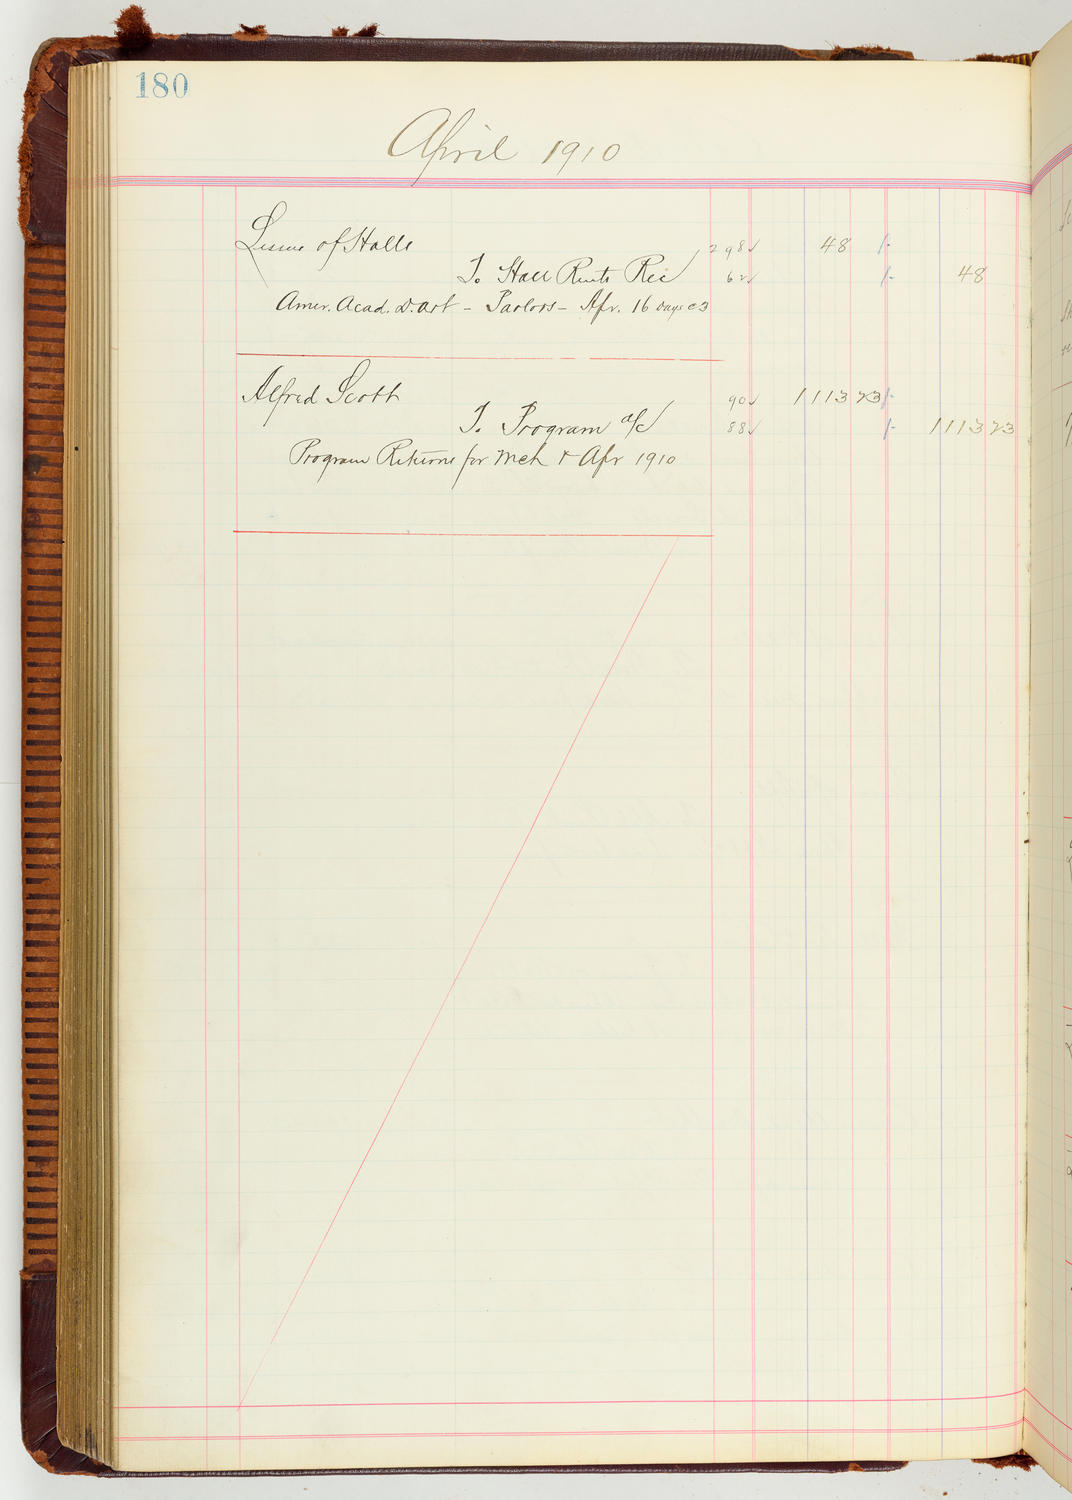 180
April 1910
Lessee of Halls 298 ✓ 48
To Hall Rents Rec 62 ✓ 48
Amer. Acad. D. Art - Parlors - Apr. 16 Days @ 3
Alfred Scott 90 ✓ 1113 23
To Program a/c 88 ✓ 1113 23
Program Returns for Mch & Apr 1910